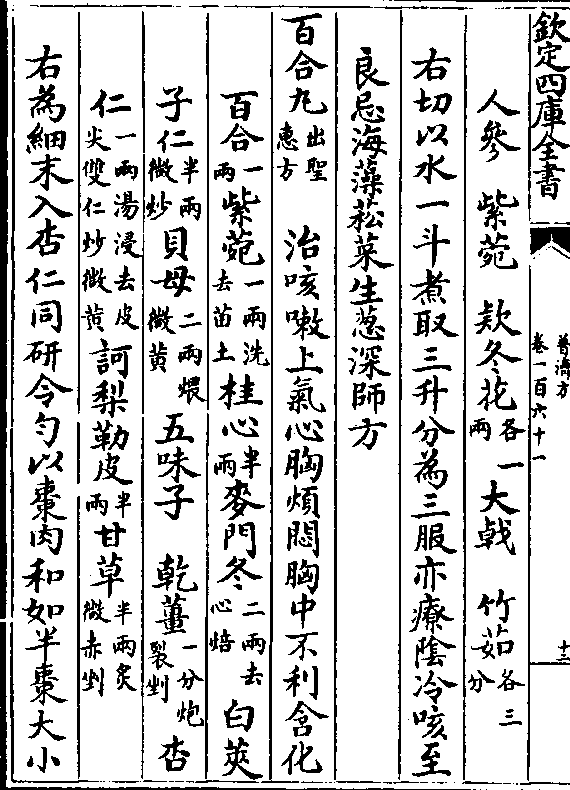 欽定四庫全書
普濟方
卷一百六十一
十三
人參 紫菀 欵冬花各一兩 大戟 竹茹各三分
右切以水一斗煮取三升分為三服亦療陰冷咳至
良忌海藻菘菜生蔥深師方
百合丸出聖惠方 治咳嗽上氣心胸煩悶胸中不利含化
百合一兩 紫菀一兩洗去苗土 桂心半兩 麥門冬二兩去心焙 白莢
子仁半兩微炒 貝母二兩煨微黃 五味子 乾薑一分炮裂剉 杏
仁一兩湯浸去皮尖雙仁炒微黃 訶梨勒皮半兩 甘草半兩炙微赤剉
右為細末入杏仁同研令勻以棗肉和如半棗大小